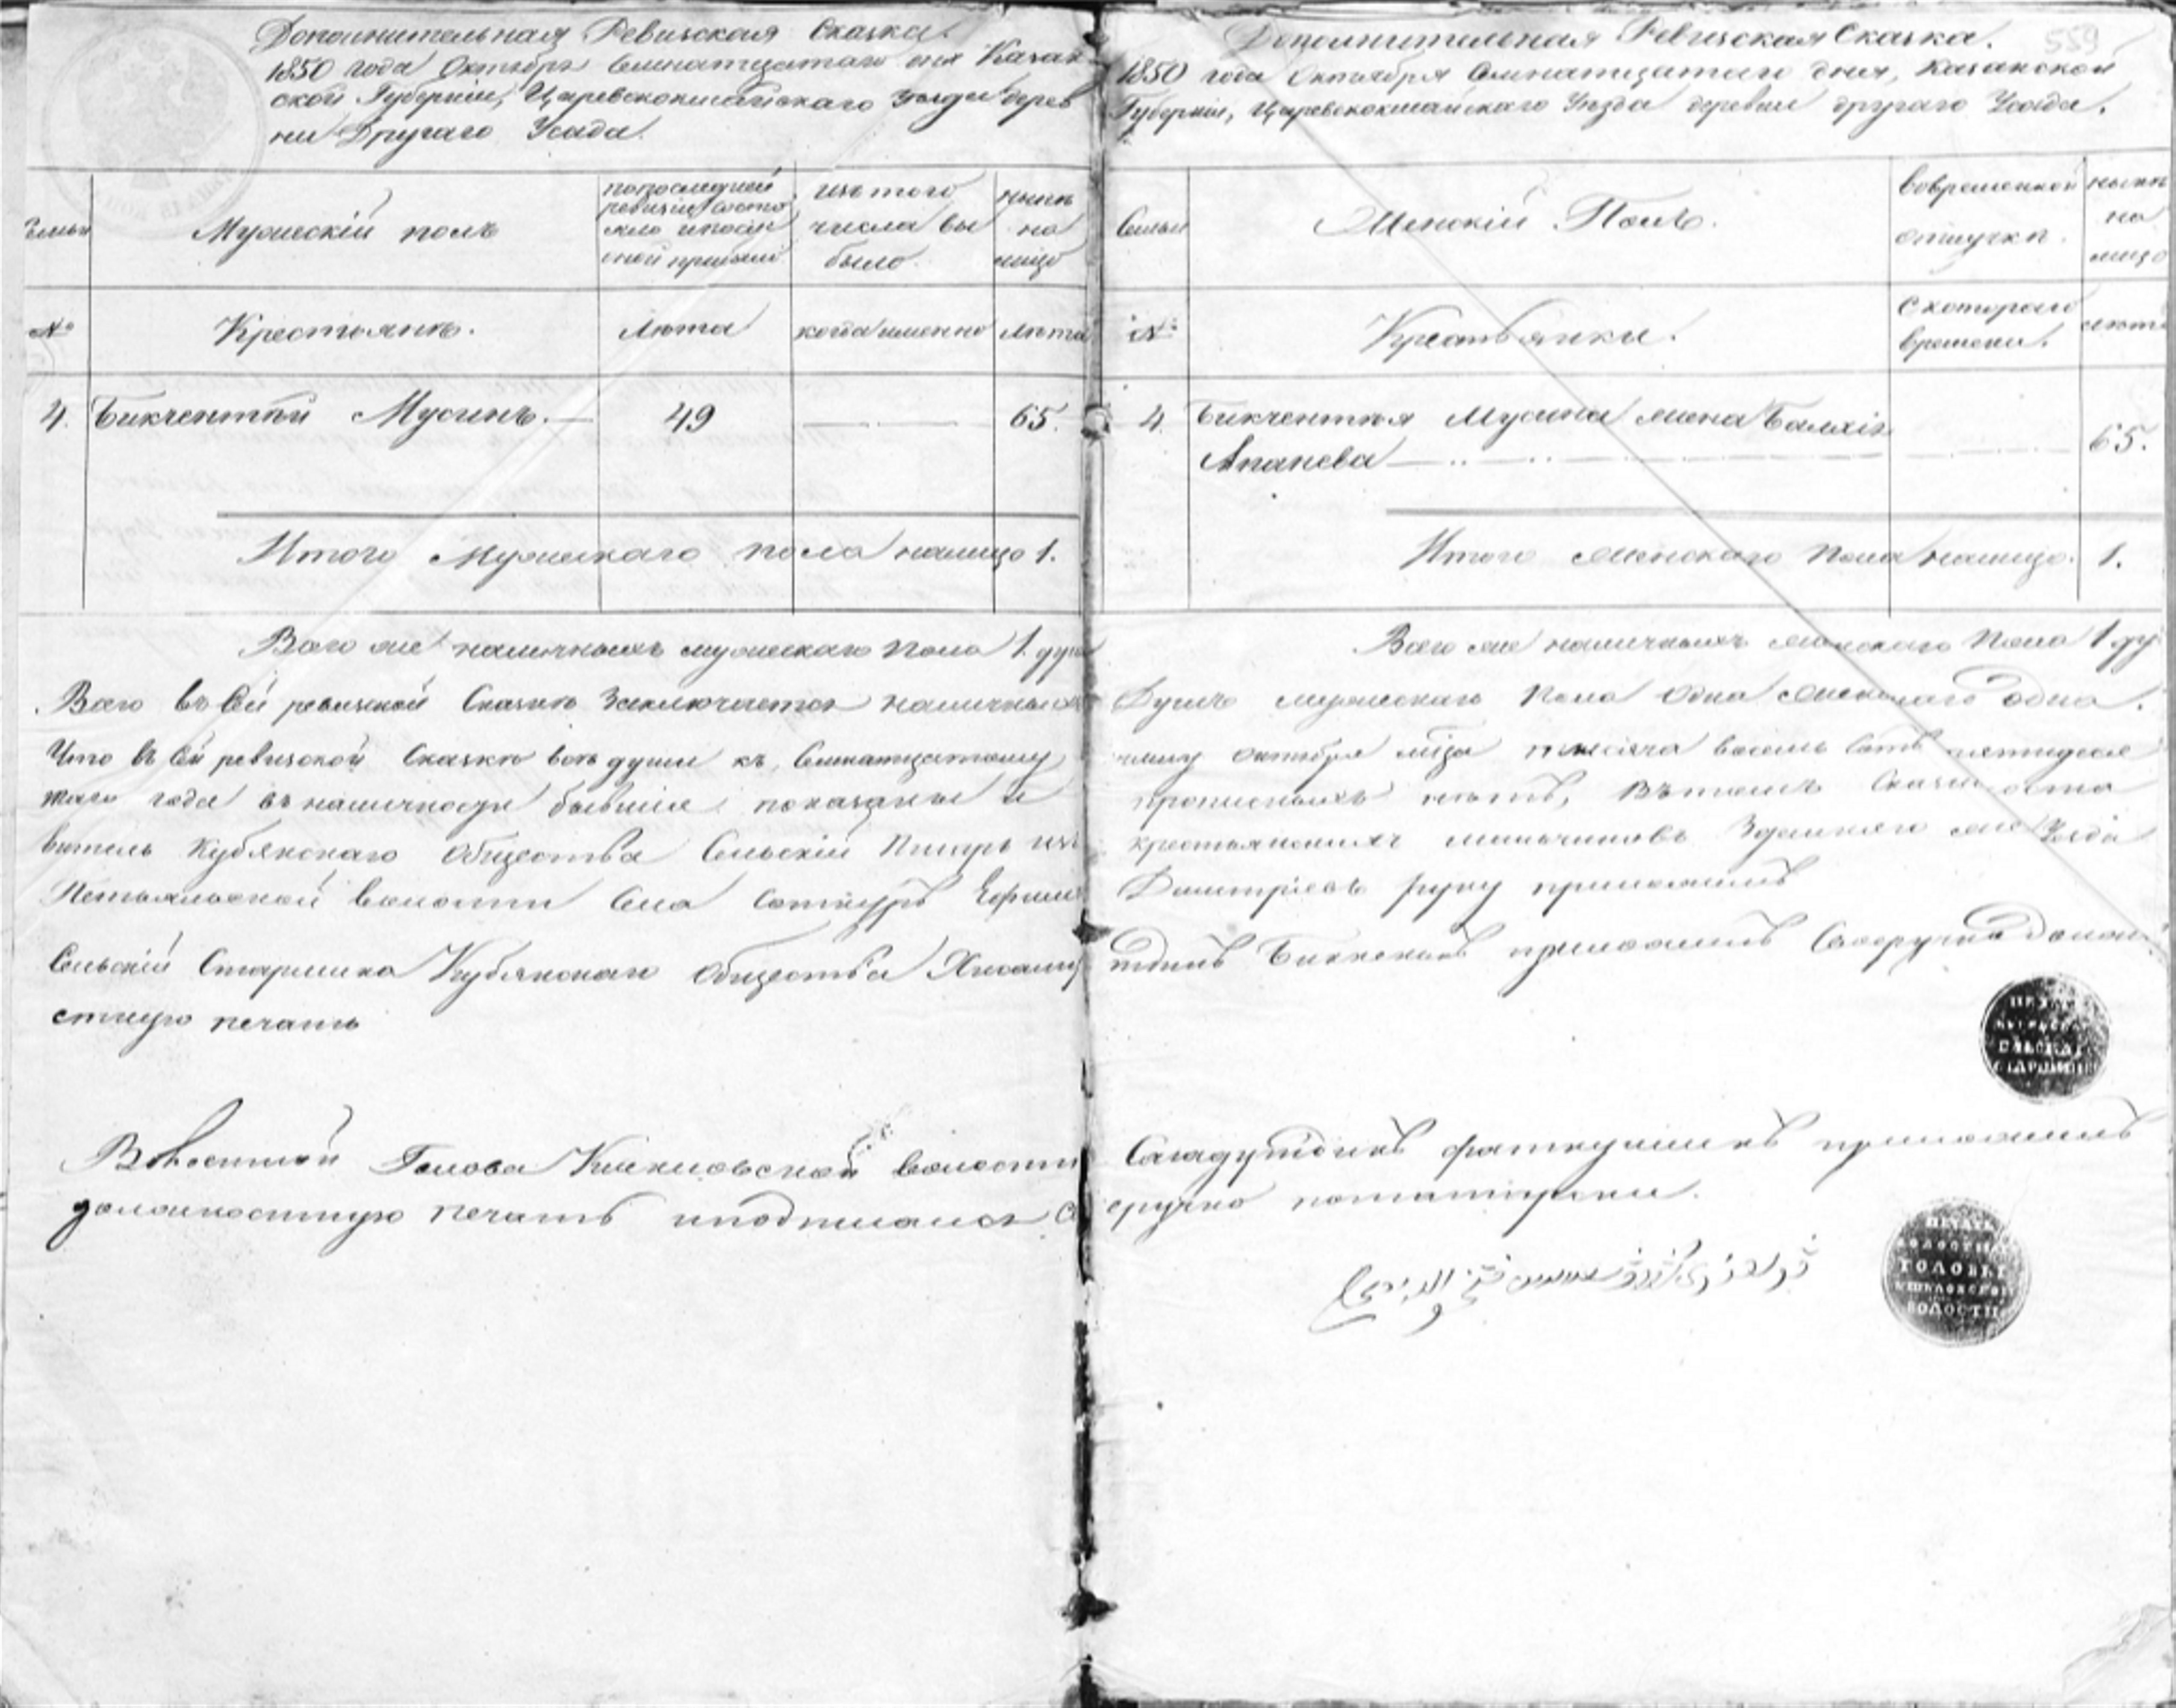 Дополнительная Ревизская Сказка.
1850 года Октября Семнатцатаго дня Казан
ской Губерніи, Царевококшайскаго Уезда дерев
ни Другаго Усада.
Семьи
Мужескій полъ
по последней
ревизіи состо
яло и после
оной прибыло
изъ того
числа вы
было.
нынѣ
на
лицо
№
Крестьянъ.
Лѣта
когда именно
Лѣта
4. Бикчентѣй Мусинъ. — 49 — 65.
Итого Мужескаго пола налицо 1.
Всего же наличныхъ мужескаго пола 1. душ
Всего въ сей ревизской Сказкѣ Заключается наличныхъ
Что въ сей ревизской Сказкѣ всѣ души къ Семнатцатому
таго года въ наличности бывшіе показаны и
витель Кубянскаго Общества Сельскій Писарь изъ
Петьяльской волости Села Сотнуръ Ефим
Сельскій Старшина Кубянскаго Общества
стную печать
Волостной Голова волости
должностную печать и подписался С
Дополнительная Ревизская Сказка. 559
1850 года Октября Семнатцатаго дня, Казанской
Губерніи, Царевококшайскаго Уезда деревни другаго Усада.
Семьи
Женскій Полъ.
Во временной
отлучкѣ.
нынѣ
на
лицо
№
Крестьянки.
С котораго
времени.
лѣта
4. Бикчентѣя Мусина жена
Апанева — 65.
Итого женскаго пола налицо. 1.
Всего же наличныхъ женскаго пола 1 ду
Душъ мужескаго пола одна женскаго одна.
Октября мѣца тысяча восемь сотъ пятидеся
прописныхъ нѣтъ, Въ томъ Сказко
крестьянскихъ мальчиковъ Здешняго же Уезда
Димитріевъ руку приложилъ
приложилъ Своеручно долж
ПЕЧАТЬ
СЕЛЬСКАГО
СТАРШИНЫ
Сагадутдинъ Фаткуллинъ приложилъ
еручно потатарски.
ПЕЧАТЬ
ВОЛОСТН
ГОЛОВЫ
ВОЛОСТИ